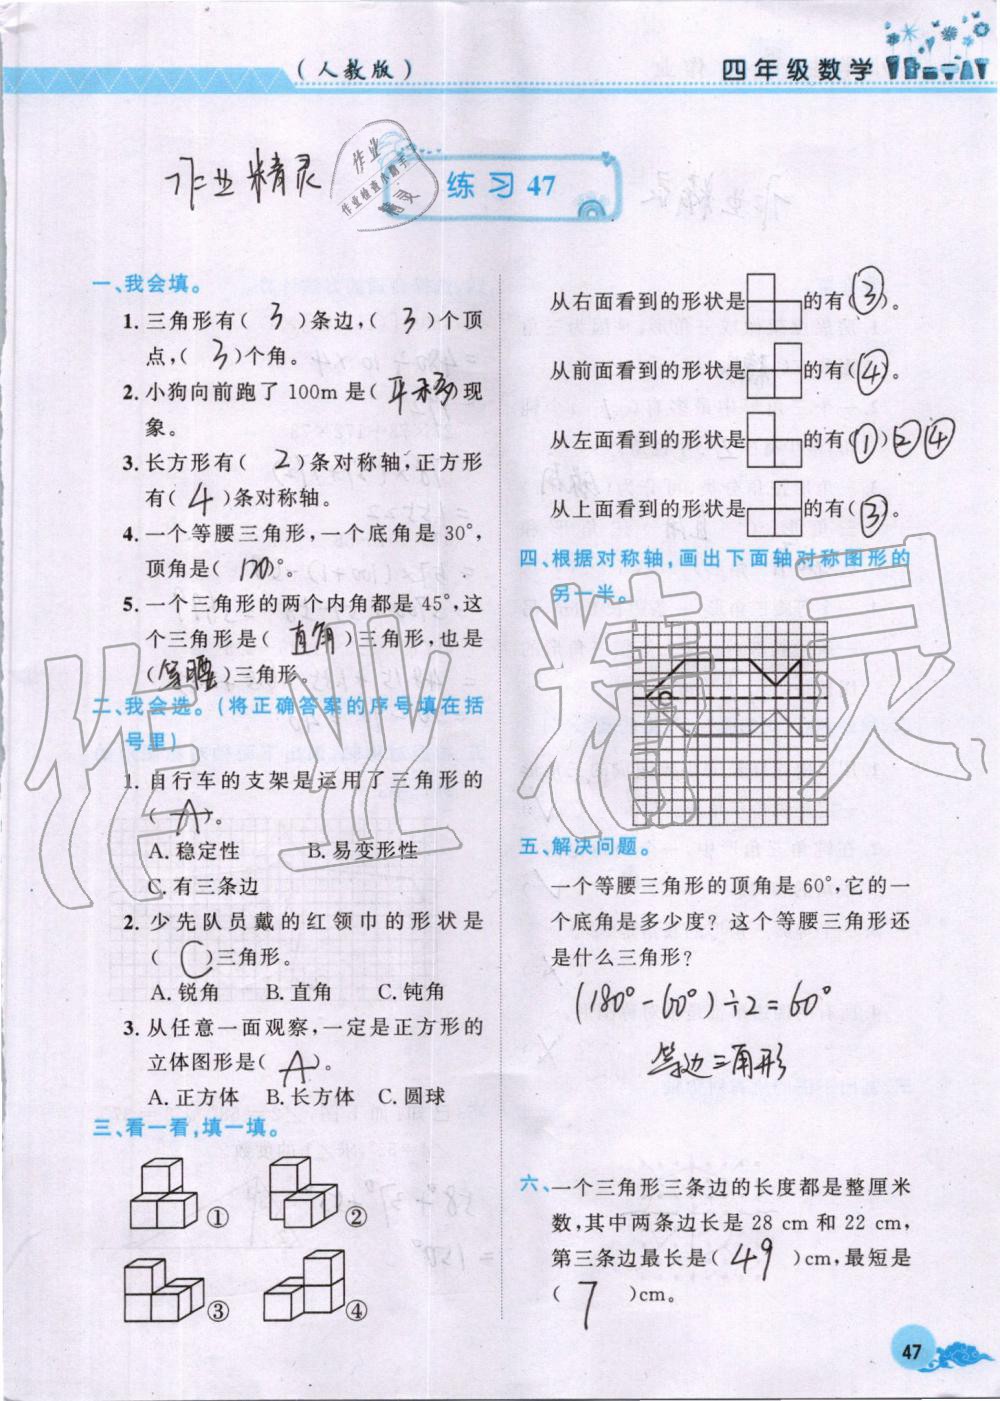 (人教版)
四年级数学
作业精灵
作业
作业检查小助手
精灵
练习 47
一、我会填。
1. 三角形有( 3 )条边,( 3 )个顶
点,( 3 )个角。
2. 小狗向前跑了 100m 是( 平移 )现
象。
3. 长方形有( 2 )条对称轴,正方形
有( 4 )条对称轴。
4. 一个等腰三角形,一个底角是 30°,
顶角是( 120 )°。
5. 一个三角形的两个内角都是 45°,这
个三角形是( 直角 )三角形,也是
( 等腰 )三角形。
二、我会选。(将正确答案的序号填在括
号里)
1. 自行车的支架是运用了三角形的
( A )。
A. 稳定性 B. 易变形性
C. 有三条边
2. 少先队员戴的红领巾的形状是
( C )三角形。
A. 锐角 B. 直角 C. 钝角
3. 从任意一面观察,一定是正方形的
立体图形是( A )。
A. 正方体 B. 长方体 C. 圆球
三、看一看,填一填。
① ②
③ ④
从右面看到的形状是 的有( ③ )。
从前面看到的形状是 的有( ④ )。
从左面看到的形状是 的有( ① )②④
从上面看到的形状是 的有( ③ )。
四、根据对称轴,画出下面轴对称图形的
另一半。
五、解决问题。
一个等腰三角形的顶角是 60°,它的一
个底角是多少度? 这个等腰三角形还
是什么三角形?
(180°-60°)÷2=60°
等边三角形
六、一个三角形三条边的长度都是整厘米
数,其中两条边长是 28 cm 和 22 cm,
第三条边最长是( 49 )cm,最短是
( 7 )cm。
47
作业精灵